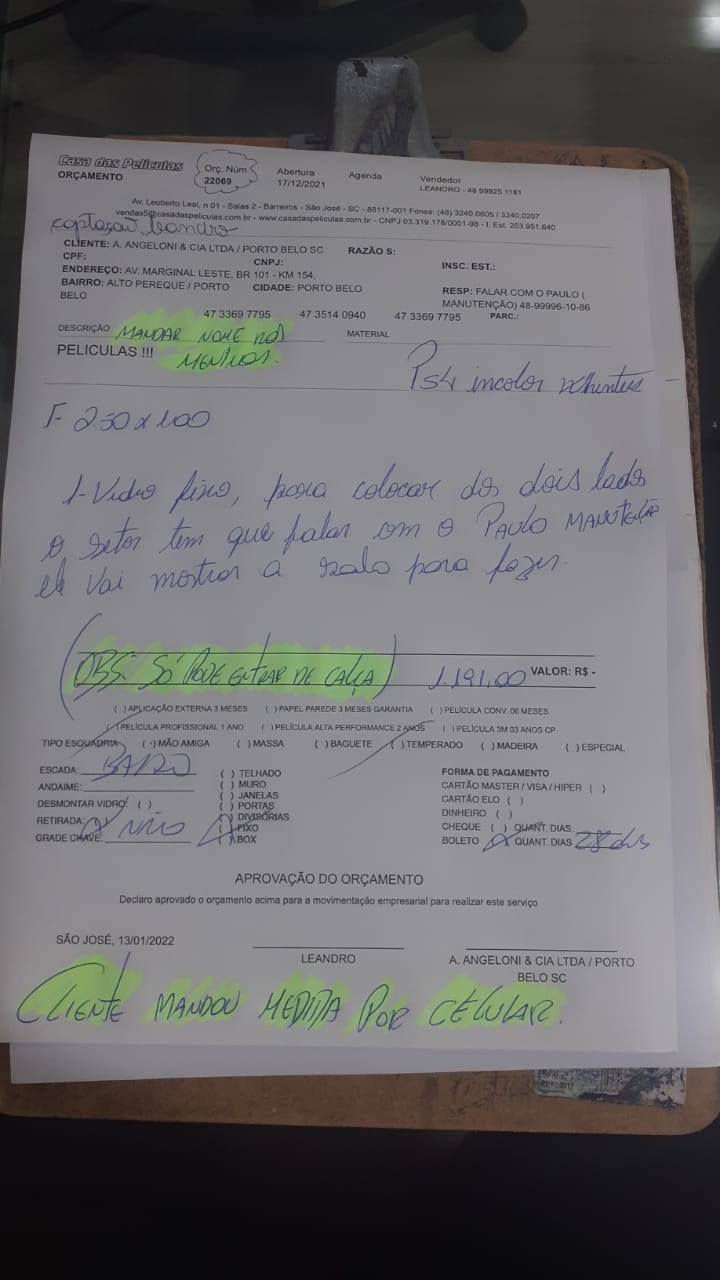 Casa das Películas
ORÇAMENTO
Orç. Núm
22069
Abertura
17/12/2021
Agenda
Vendedor
LEANDRO - 48 99925 1161
Av. Leoberto Leal, n 01 - Salas 2 - Barreiros - São José - SC - 88117-001 Fones: (48) 3240.0605 / 3240.0207
vendas5@casadaspeliculas.com.br - www.casadaspeliculas.com.br - CNPJ 03.319.178/0001-98 - I. Est. 253.951.640
captação Leandro
CLIENTE: A. ANGELONI & CIA LTDA / PORTO BELO SC RAZÃO S:
CPF: CNPJ: INSC. EST.:
ENDEREÇO: AV. MARGINAL LESTE, BR 101 - KM 154,
BAIRRO: ALTO PEREQUE / PORTO BELO CIDADE: PORTO BELO
RESP: FALAR COM O PAULO ( MANUTENÇÃO) 48-99996-10-86
47 3369 7795 47 3514 0940 47 3369 7795 PARC.:
DESCRIÇÃO MANDAR NOME DOS MENINOS. MATERIAL
PELICULAS !!!
PS4 incolor
F 2.50 x 1.00
1-Vidro fixo, para colocar dos dois lados
o setor tem que falar com o PAULO MANUTENÇÃO
ele vai mostrar a sala para fazer.
(OBS: SÓ PODE ENTRAR DE CALÇA) 1.191,00 VALOR: R$ -
( ) APLICAÇÃO EXTERNA 3 MESES ( ) PAPEL PAREDE 3 MESES GARANTIA ( ) PELÍCULA CONV. 06 MESES
( ) PELÍCULA PROFISSIONAL 1 ANO ( ) PELÍCULA ALTA PERFORMANCE 2 ANOS ( ) PELÍCULA 3M 03 ANOS CP
TIPO ESQUADRIA ( ) MÃO AMIGA ( ) MASSA ( ) BAGUETE ( ) TEMPERADO ( ) MADEIRA ( ) ESPECIAL
ESCADA:
ANDAIME:
DESMONTAR VIDRO: ( )
RETIRADA: ( ) NÃO
GRADE CHAVE:
( ) TELHADO
( ) MURO
( ) JANELAS
( ) PORTAS
( ) DIVISÓRIAS
( ) FIXO
( ) BOX
FORMA DE PAGAMENTO
CARTÃO MASTER / VISA / HIPER ( )
CARTÃO ELO ( )
DINHEIRO ( )
CHEQUE ( ) QUANT. DIAS:
BOLETO (X) QUANT. DIAS 28 dds
APROVAÇÃO DO ORÇAMENTO
Declaro aprovado o orçamento acima para a movimentação empresarial para realizar este serviço
SÃO JOSÉ, 13/01/2022
LEANDRO
A. ANGELONI & CIA LTDA / PORTO
BELO SC
CLIENTE MANDOU MEDIDA POR CELULAR.